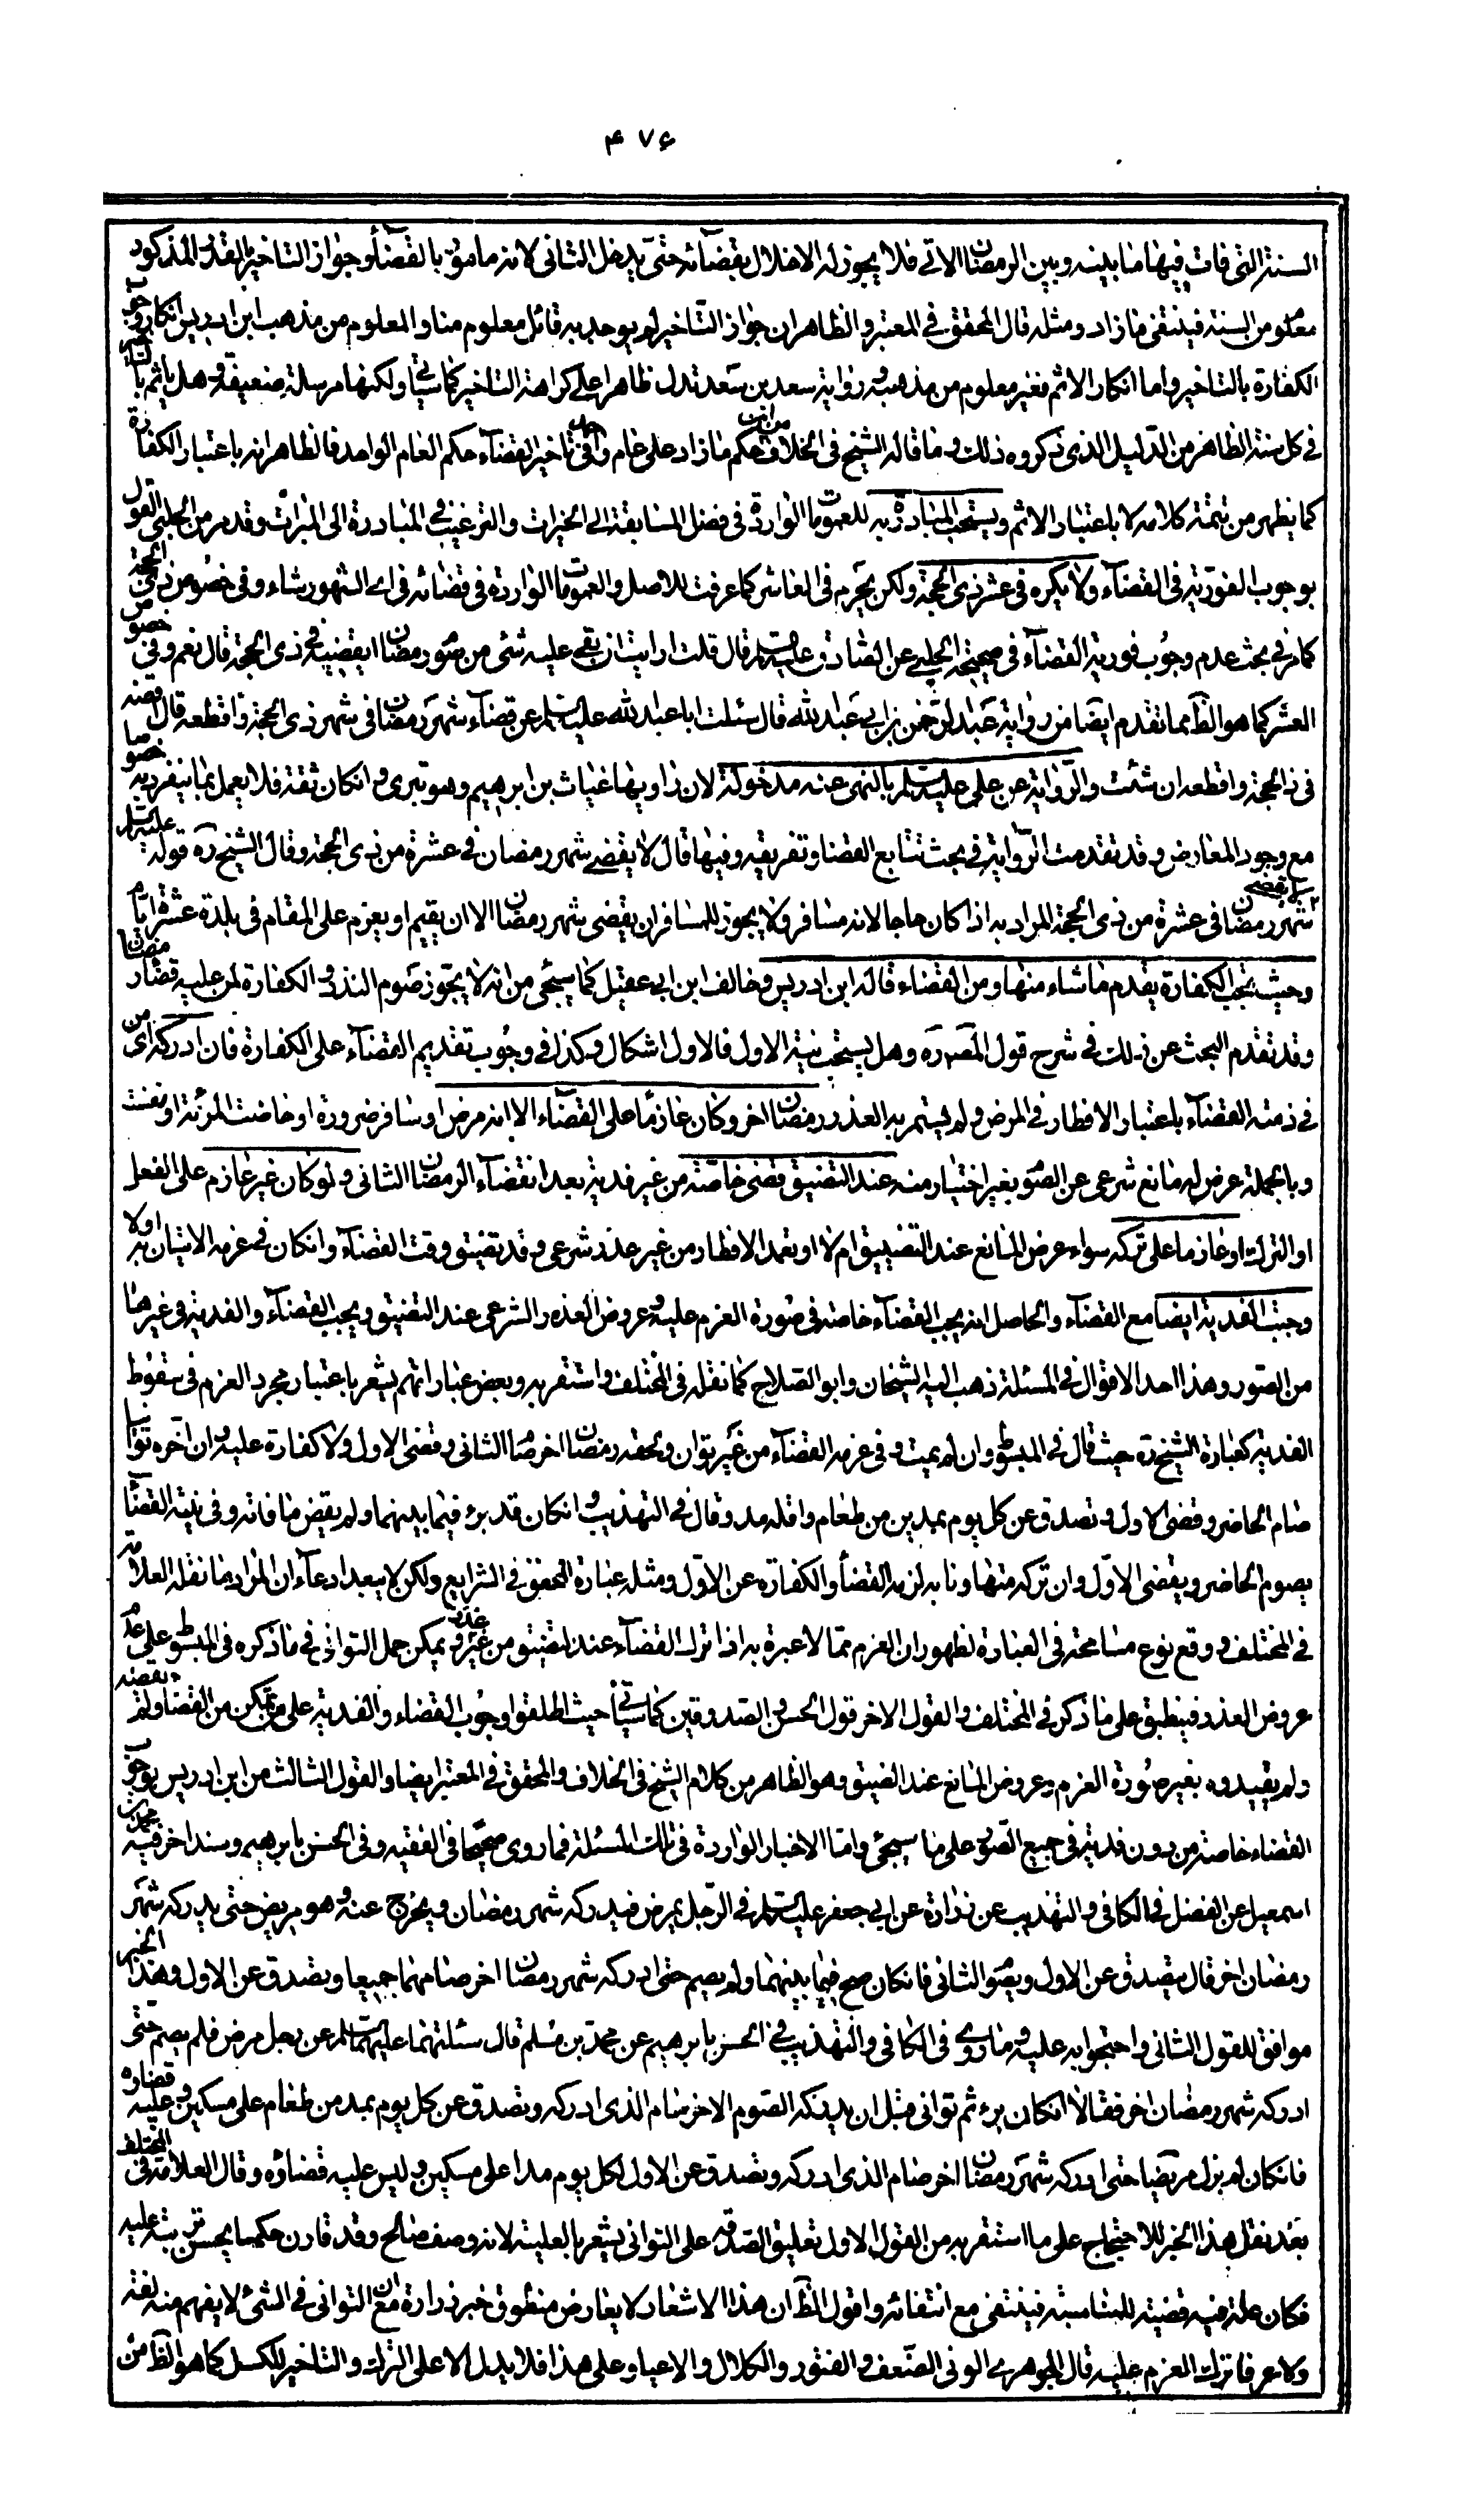 ۴۷۶
السنة التى فات فيها ما بينه و بين الرمضان الاتي فلا يجوز له الاخلال بقضائه حتى يدخل الثانى لانه مامور بالقضاء و جواز التاخير بالقدر المذكور
معلوم من السنة فينتفى ما زاد و مثله قال المحقق في المعتبر و الظاهر ان جواز التاخير لم يوجد به قائل معلوم منا و المعلوم من مذهب ابن ادريس انكار وجوب
الكفارة بالتاخير و اما انكار الاثم فغير معلوم من مذهبه و رواية سعد بن سعد تدل ظاهرا على كراهة التاخير كما سيأتي و لكنها مرسلة ضعيفة و هل ياثم بالتاخير
في كل سنة الظاهر من الدليل الذى ذكروه ذلك و ما قاله الشيخ فى الخلاف من ان حكم ما زاد على عام واحد فى تاخير القضاء حكم العام الواحد فالظاهر انه باعتبار الكفارة
كما يظهر من تتمة كلامه لا باعتبار الاثم و يستحب المبادرة به للعمومات الواردة فى فضل المسابقة الى الخيرات و الترغيب في المبادرة الى المبرات و قد مر من الحلبى القول
بوجوب الفورية فى القضاء و لا يكره فى عشر ذى الحجة و لكن يحرم فى العاشر كما عرفت للاصل و العمومات الواردة فى قضائه فى اي الشهور شاء و فى خصوص ذى الحجة
كما مر في بحث عدم وجوب فورية القضاء فى صحيحة الحلبي عن الصادق عليه السلم قال قلت ارايت ان بقي عليه شئ من صوم رمضان ايقضيه في ذى الحجة قال نعم و فى خصوص
العشر كما هو الظ مما تقدم ايضا من رواية عبد الرحمن بن ابي عبد الله قال سئلت ابا عبد الله عليه السلم عن قضاء شهر رمضان فى شهر ذى الحجة و اقطعه قال اقضه
فى ذى الحجة و اقطعه ان شئت و الرواية عن على عليه السلم بالنهى عنه مدخولة لان راويها غياث بن ابرهيم و هو بترى و ان كان ثقة فلا يعمل بما ينفرد به خصوصا
مع وجود المعارض و قد تقدمت الرواية في بحث تتابع القضا و تفريقه و فيها قال لا يقضى شهر رمضان في عشرة من ذى الحجة و قال الشيخ ره قوله عليه السلم
لا يقضى شهر رمضان فى عشرة من ذى الحجة المراد به اذا كان حاجا لانه مسافر و لا يجوز للمسافر ان يقضى شهر رمضان الا ان يقيم او يعزم على المقام فى بلدة عشرة ايام
و حيث تجب الكفارة يقدم ما شاء منها و من القضاء قاله ابن ادريس و خالف ابن ابي عقيل كما سيجئ من انه لا يجوز صوم النذر و الكفارة لمن عليه قضاء رمضان
و قد تقدم البحث عن ذلك في شرح قول المص ره و هل يستحب نية الاول فالاول اشكال و كذا في وجوب تقديم القضاء على الكفارة فان ادركه اى من
في ذمته القضاء باعتبار الافطار في المرض و لم يستمر به العذر رمضان اخر و كان عازما على القضاء الا انه مرض او سافر ضرورة او حاضت المرئة او نفست
و بالجملة عرض له مانع شرعى عن الصوم بغير اختيار منه عند التضيق قضى خاصة من غير فدية بعد انقضاء الرمضان الثانى و لو كان غير عازم على الفعل
او الترك او عازما على تركه سواء عرض المانع عند التضييق ام لا او تعمد الافطار من غير عذر شرعى و قد تضيق وقت القضاء و ان كان فى عزمه الاتيان به اولا
وجبت الفدية ايضا مع القضاء و الحاصل انه يجب القضاء خاصة فى صورة العزم عليه و عروض العذر الشرعى عند التضيق و يجب القضاء و الفدية فى غيرها
من الصور و هذا احد الاقوال في المسئلة ذهب اليه الشيخان و ابو الصلاح كما نقله فى المختلف و استقربه و بعض عباراتهم يشعر باعتبار مجرد العزم فى سقوط
الفدية كعبارة الشيخ ره حيث قال في المبسوط و ان لم يمت و فى عزمه القضاء من غير توان و لحقه رمضان اخر صام الثانى و قضى الاول و لا كفارة عليه و ان اخره توانيا
صام الحاضر و قضى الاول و تصدق عن كل يوم بمدين من طعام و اقله مد و قال في التهذيب و ان كان قد برء فيما بينهما و لم يقض ما فاته و فى نيته القضاء
يصوم الحاضر و يقضى الاول و ان تركه متهاونا به لزمه القضاء و الكفارة عن الاول و مثله عبارة المحقق في الشرايع و لكن لا يبعد ادعاء ان المراد ما نقله العلامة
في المختلف و وقع نوع مسامحة فى العبارة لظهور ان العزم مما لا عبرة به اذا ترك القضاء عند التضيق من غير عذر و يمكن حمل التوانى في ما ذكره فى المبسوط على عدم
عروض العذر فينطبق على ما ذكر في المختلف و القول الاخر قول الحسن و الصدوقين كما سيأتي حيث اطلقوا وجوب القضاء و الفدية على من تمكن من القضا و لم يقضه
و لم يقيدوه بغير صورة العزم و عروض المانع عند الضيق و هو الظاهر من كلام الشيخ فى الخلاف و المحقق في المعتبر ايضا و القول الثالث من ابن ادريس بوجوب
القضاء خاصة من دون فدية فى جميع الصور على ما سيجئ و اما الاخبار الواردة فى تلك المسئلة فما روى صحيحا فى الفقيه و فى الحسن بابرهيم و سند اخر فيه محمد بن
اسمعيل عن الفضل في الكافى و التهذيب عن زرارة عن ابى جعفر عليه السلم في الرجل يمرض فيدركه شهر رمضان و يخرج عنه و هو مريض حتى يدركه شهر
رمضان اخر قال يتصدق عن الاول و يصوم الثانى فان كان صح فيما بينهما و لم يصم حتى ادركه شهر رمضان اخر صامهما جميعا و تصدق عن الاول و هذا الخبر
موافق للقول الثانى و احتجوا به عليه و ما روي فى الكافى و التهذيب في الحسن بابرهيم عن محمد بن مسلم قال سئلتهما عليهما السلم عن رجل مرض فلم يصم حتى
ادركه شهر رمضان اخر فقالا ان كان برء ثم توانى قبل ان يدركه الصوم الاخر صام الذى ادركه و تصدق عن كل يوم بمد من طعام على مسكين و عليه قضاؤه
فان كان لم يزل مريضا حتى ادركه شهر رمضان اخر صام الذى ادركه و تصدق عن الاول لكل يوم مدا على مسكين و ليس عليه قضاؤه و قال العلامة فى المختلف
بعد نقل هذا الخبر للاحتجاج على ما استقربه من القول الاول تعليق الصدقة على التوانى يشعر بالعلية لانه وصف صالح و قد قارن حكما يحسن ترتبه عليه
فكان علة فيه قضية للمناسبة فينتفى مع انتفائه و اقول الظ ان هذا الاشعار لا يعارض منطوق خبر زرارة مع ان التوانى في الشئ لا يفهم منه لغة
و لا عرفا ترك العزم عليه قال الجوهرى الونى الضعف و الفتور و الكلال و الاعياء و على هذا فلا يدل الا على الترك و التاخير للكسل كما هو الظ من